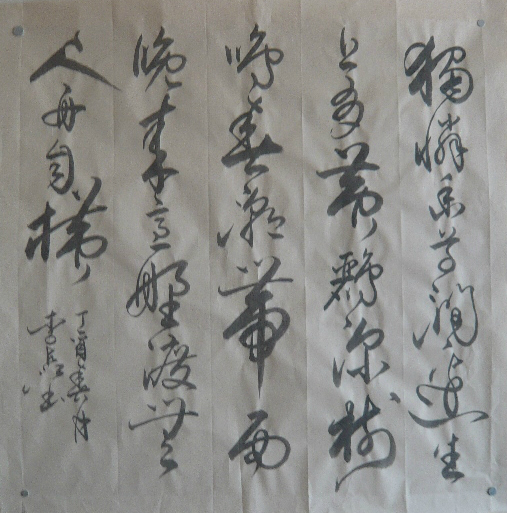 獨憐幽草澗邊生
上有黃鸝深樹
鳴春潮帶雨
晚來急野渡無
人舟自橫
丁酉春月
李